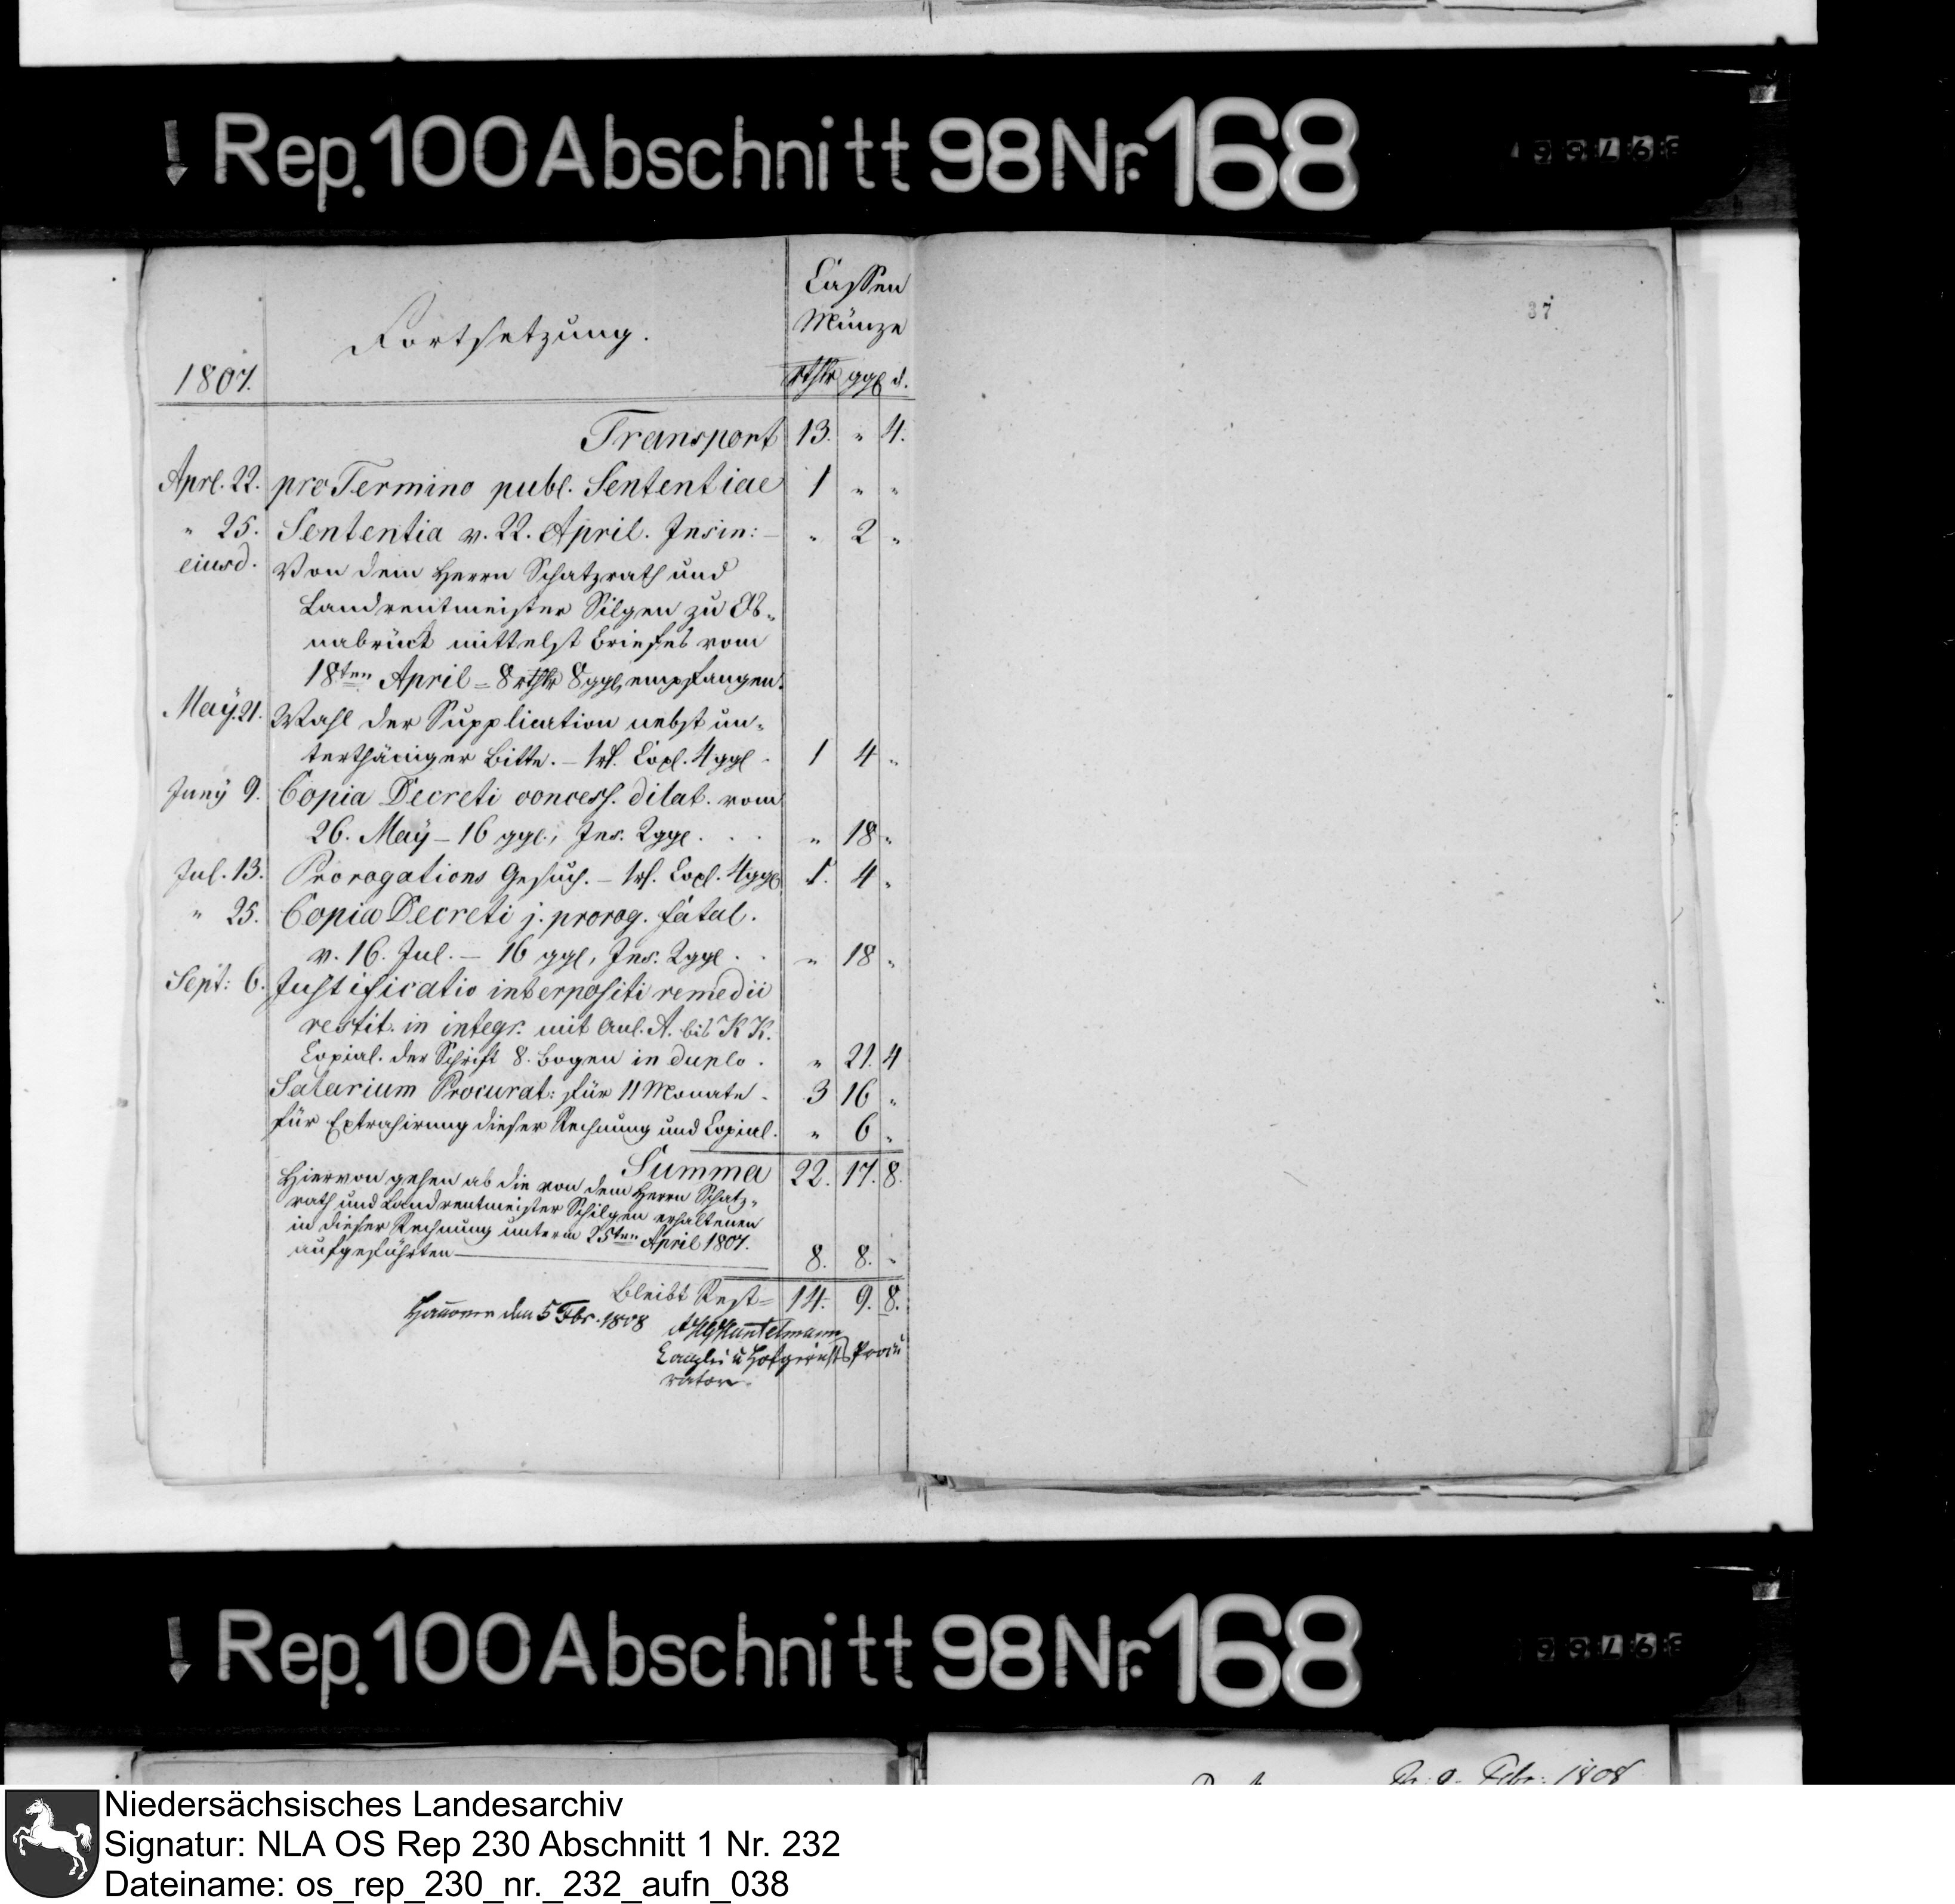 Rep. 100 Abschnitt 98 Nr. 168
Cassen
Münze
Fortsetzung.
37
1807. rthlr ggl d.
Transport 13. " 4.
Aprl. 22. pro Termino publ. Sententiae 1 " "
" 25. Sententia v. 22. April. Insin: – " 2 "
eiusd. Von dem Herrn Schatzrath und
Landrentmeister Silgen zu Os-
nabrück mittelst Briefes vom
18ten April = 8 rthlr 8 ggl, empfangen.
May. 21. Wahl der Supplication nebst un-
terthäniger Bitte. – 1 rt. Copl. 4 ggl 1 4 "
Juny 9. Copia Decreti concess. dilat. vom
26. May – 16 ggl., Ins. 2 ggl. . . " 18 "
Jul. 13. Prorogations Gesuch. – 1 rt. Copl. 4 ggl 1. 4 "
" 25. Copia Decreti j. prorog. fatal.
v. 16. Jul. – 16 ggl, Ins. 2 ggl . . " 18 "
Sept: 6. Justificatio interpositi remedii
restit. in integr. mit Anl. A. bis KK.
Copial. der Schrift 8. Bogen in duplo . " 21. 4
Salarium Procurat: für 11 Monate . 3 16 "
für Extrahirung dieser Rechnung und Copial. " 6 "
Summa 22. 17. 8.
Hiervon gehen ab die von dem Herrn Schatz-
rath und Landrentmeister Schilgen erhaltenen
in dieser Rechnung unterm 25ten April 1807.
aufgeführten 8. 8. "
Bleibt Rest = 14. 9. 8.
Hannover den 5 Fbr. 1808
Huntelmann
Canzlei u Hofgerichts Procu
rator.
Rep. 100 Abschnitt 98 Nr. 168
Febr. 1808
Niedersächsisches Landesarchiv
Signatur: NLA OS Rep 230 Abschnitt 1 Nr. 232
Dateiname: os_rep_230_nr._232_aufn_038